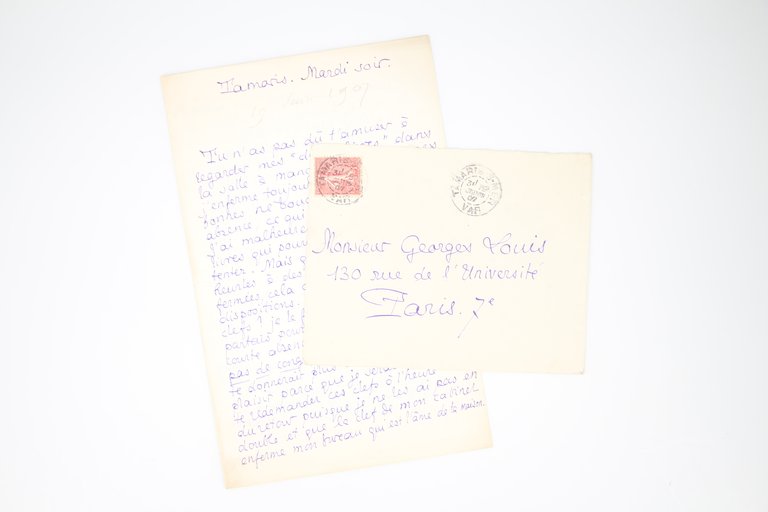 Tamaris. Mardi soir.
1907
Tu n'as pas dû t'amuser à
regarder mes dans
la salle à man
t'enferme toujou
bonnes ne bou
absence ce qui
J'ai malheureuse
livres qui pouv
tenter. Mais q
heurtes à des
fermées, cela
dispositions.
clefs ? je le
partais pour
courte absen
pas de cong
te donnerait plus
plaisir parce que je serai
te redemander ces clefs à l'heure
du retour puisque je ne les ai pas en
double et que la clef de mon cabinet
enferme mon bureau qui est l'âme de la maison.
TAMARIS-S-MER
VAR
TAMARIS-S-MER
07
VAR
Monsieur Georges Louis
130 rue de l'Université
Paris. 7e